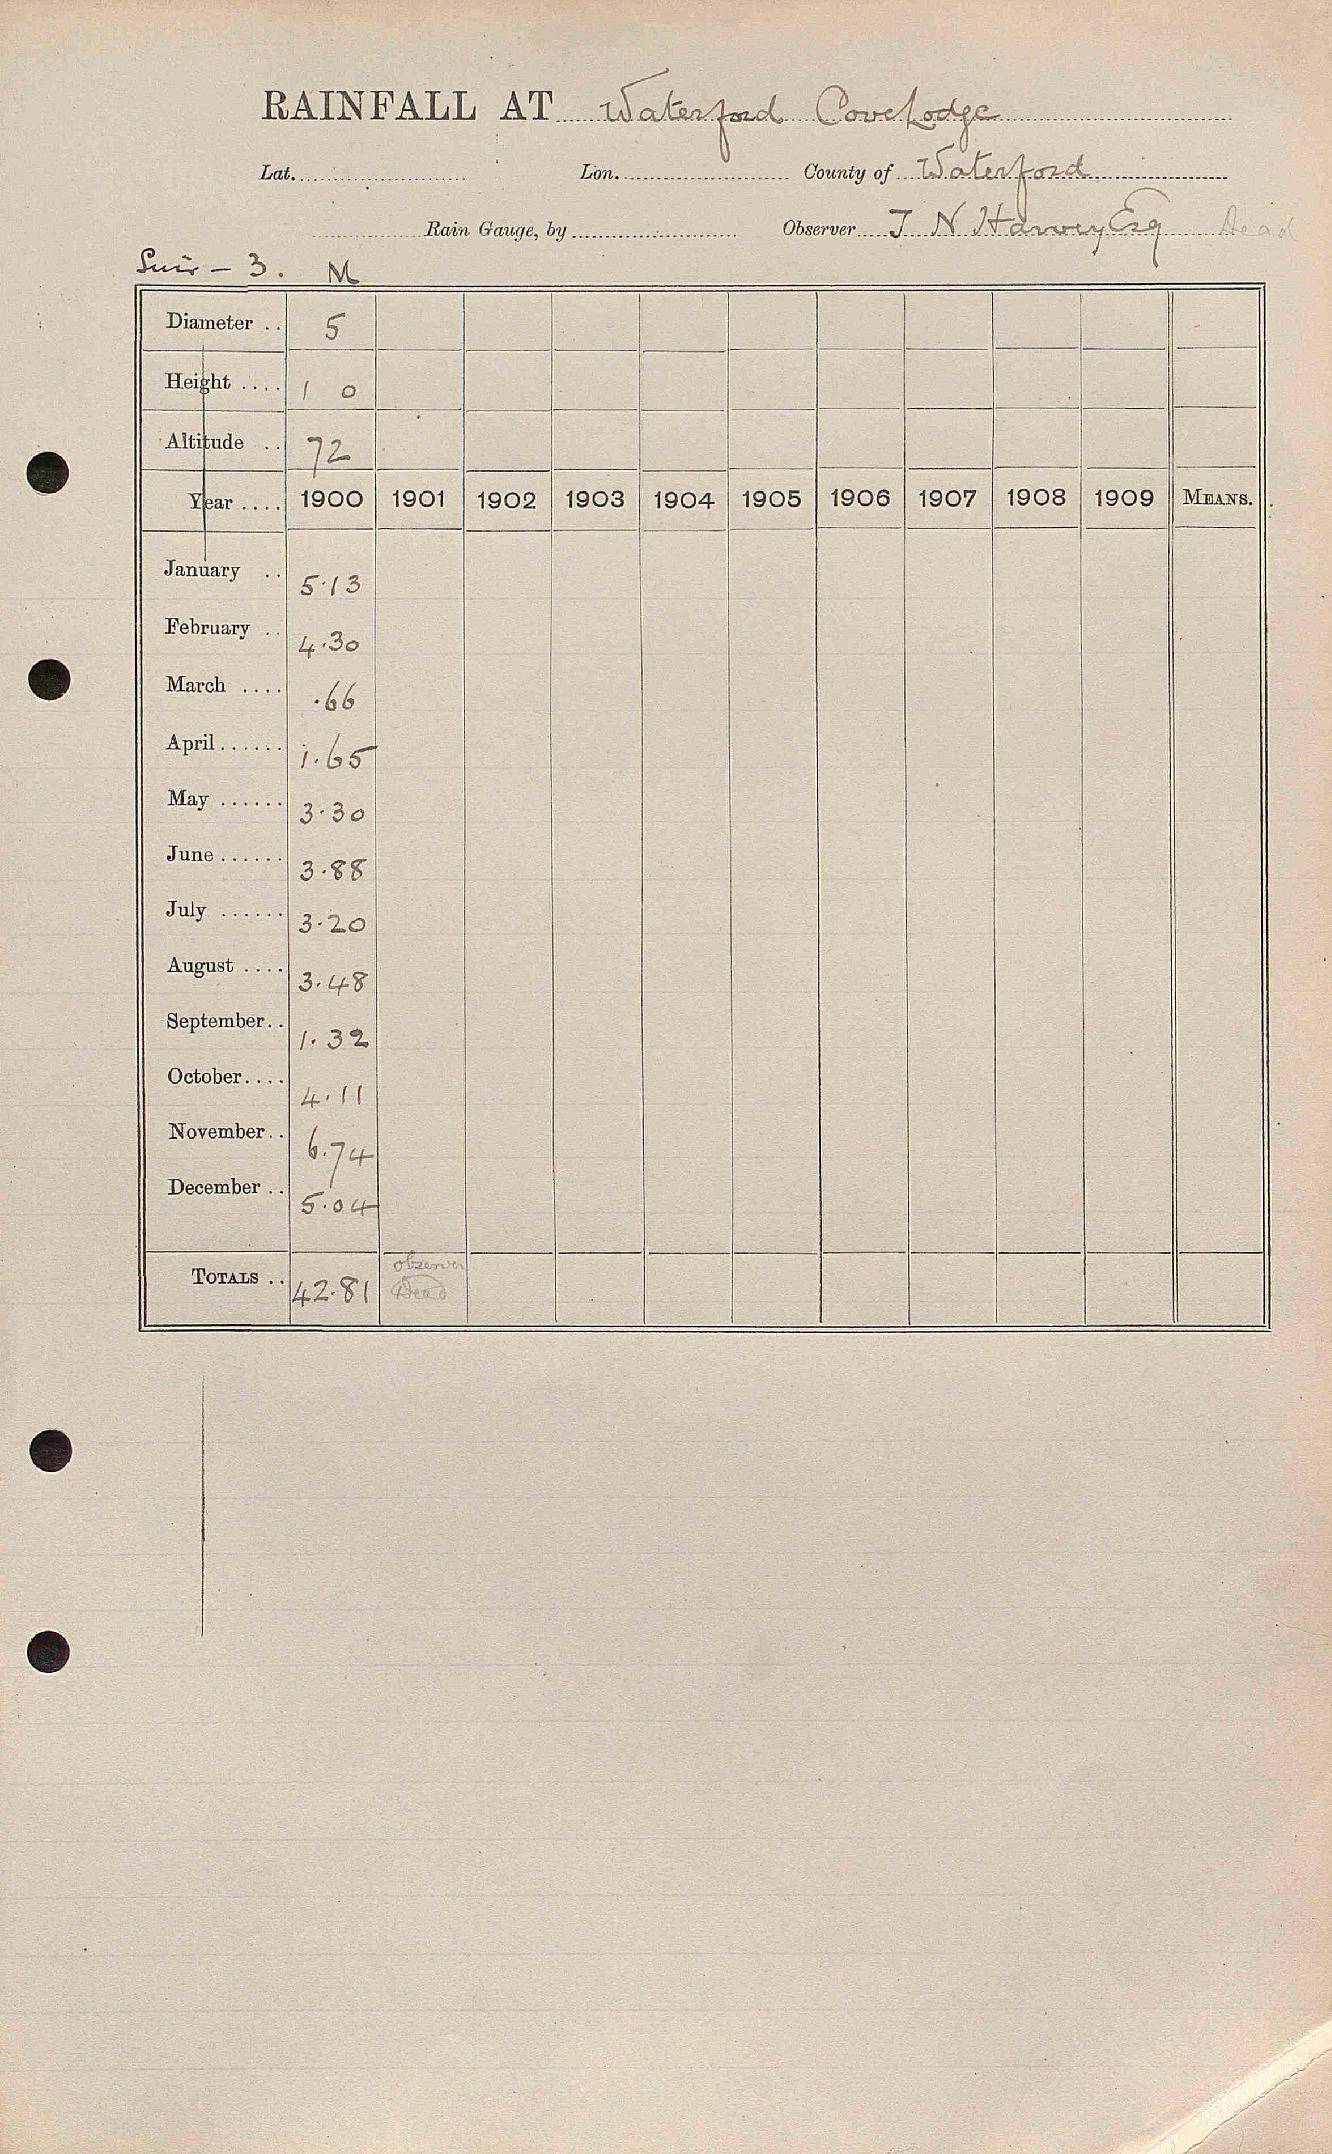 RAINFALL AT Waterford Cove Lodge
Lat. Lon. County of Waterford
Rain Gauge, by Observer T N Harvey Esq Dead
Suir - 3. M
Diameter .. 5
Height .... 1 0
Altitude .. 72
Year .... 1900 1901 1902 1903 1904 1905 1906 1907 1908 1909 MEANS.
January .. 5.13
February .. 4.30
March .... .66
April...... 1.65
May ...... 3.30
June...... 3.88
July ...... 3.20
August .... 3.48
September.. 1.32
October.... 4.11
November.. 6.74
December .. 5.04
TOTALS .. 42.81 observer Dead